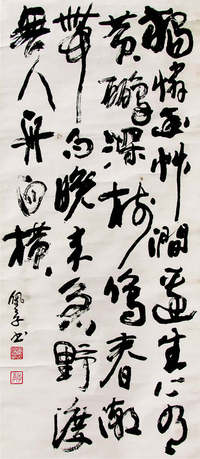 獨憐幽艸澗邊生上有
黃鸝深樹鳴春潮
帶雨晚来急野渡
無人舟自橫
书